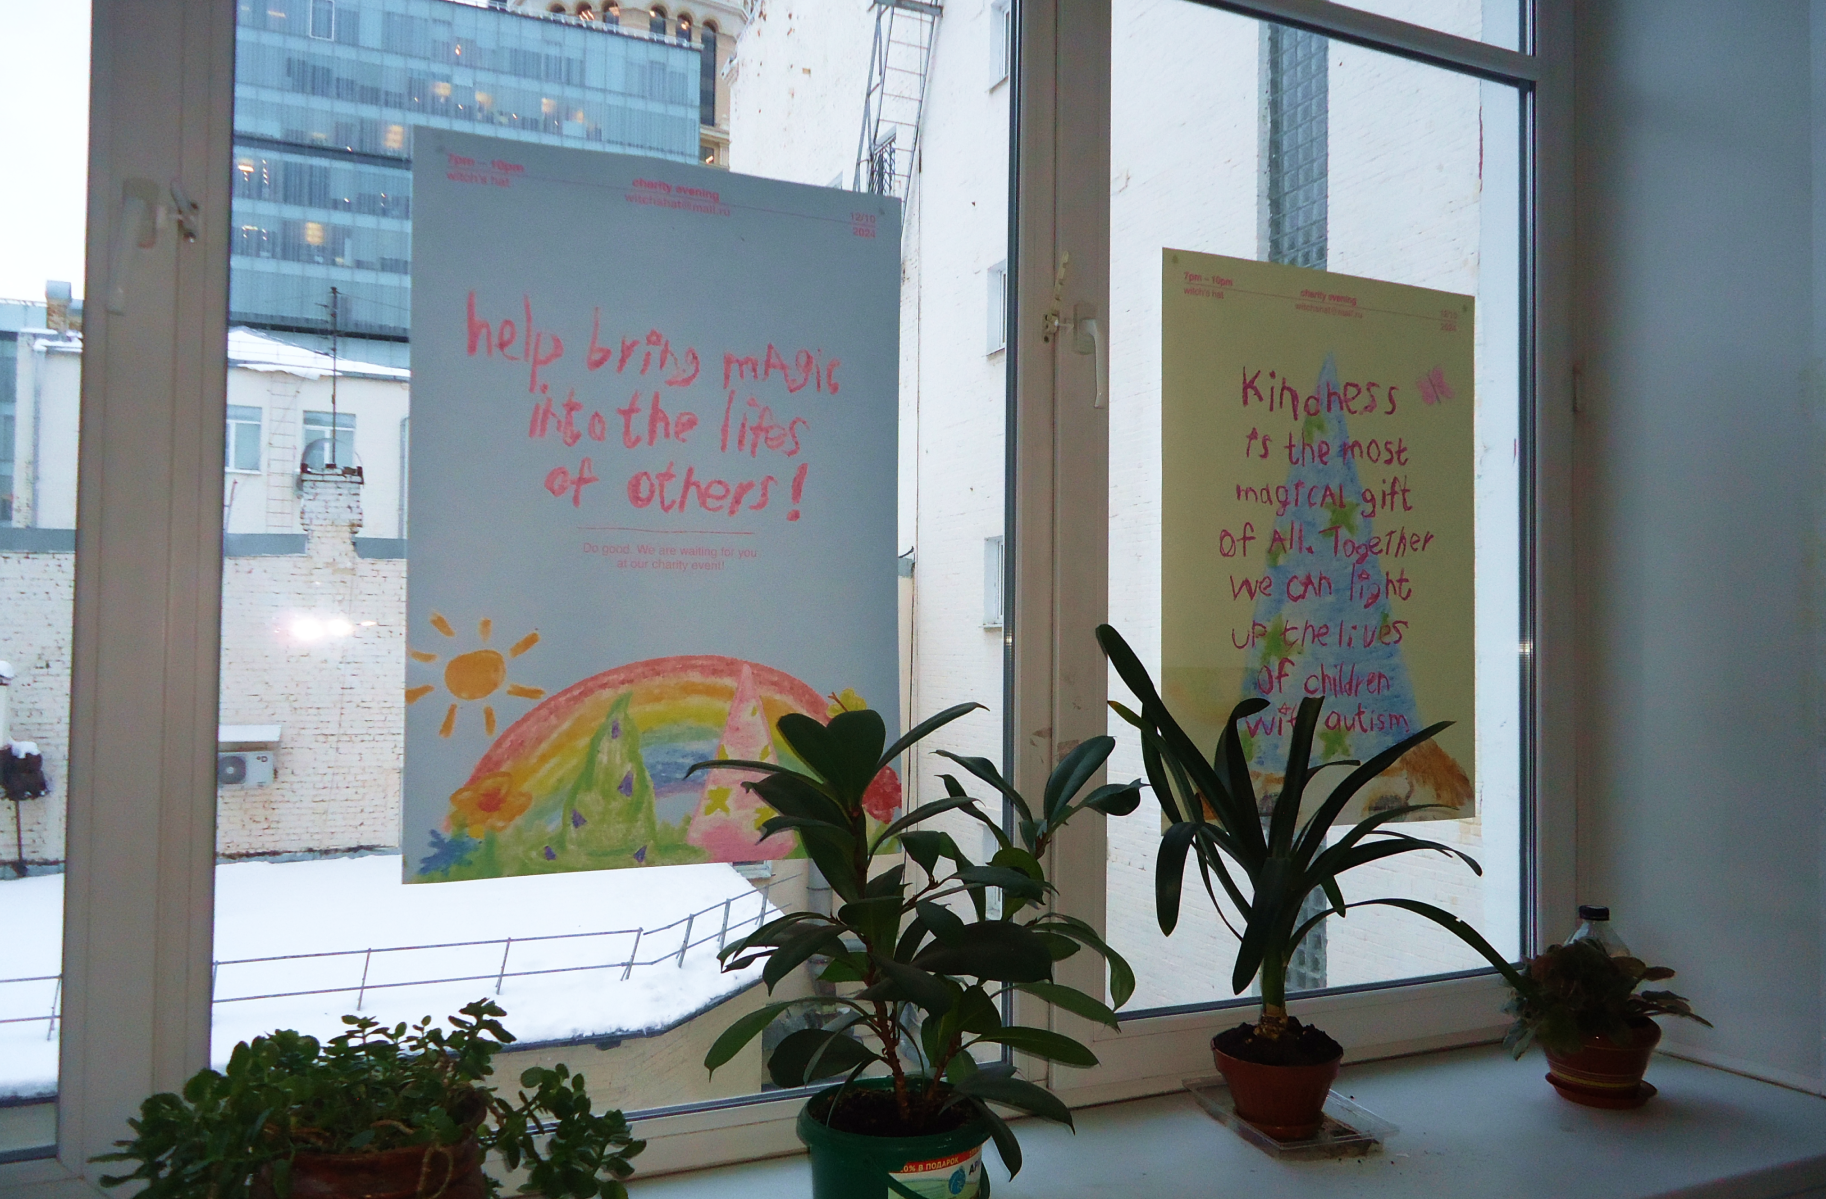 7pm – 10pm
witch's hat
charity evening
witchshat@mail.ru
12/10
2024
help bring mAgic
into the lifes
of others!
Do good. We are waiting for you
at our charity event!
7pm – 10pm
witch's hat
charity evening
witchshat@mail.ru
12/10
2024
Kindness
is the most
magICAL gift
of All. TogeTher
we cAn light
up the lives
of children
with autism
% В ПОДАРОК